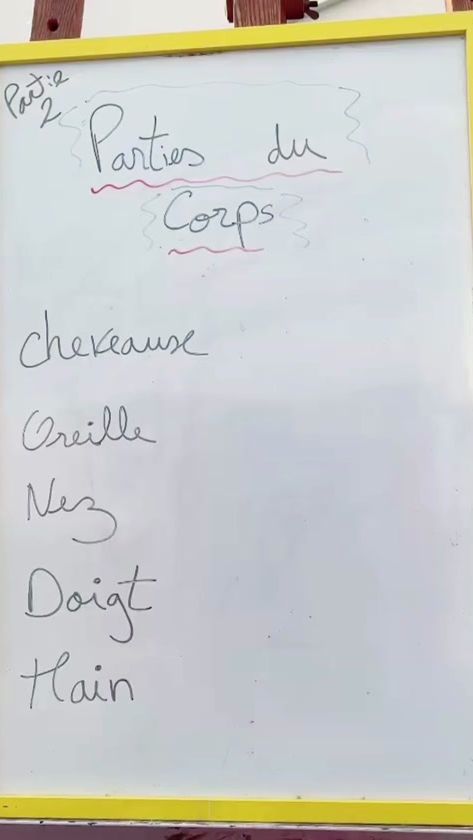 Partie
2
Parties du
Corps
cheveause
Oreille
Nez
Doigt
Main